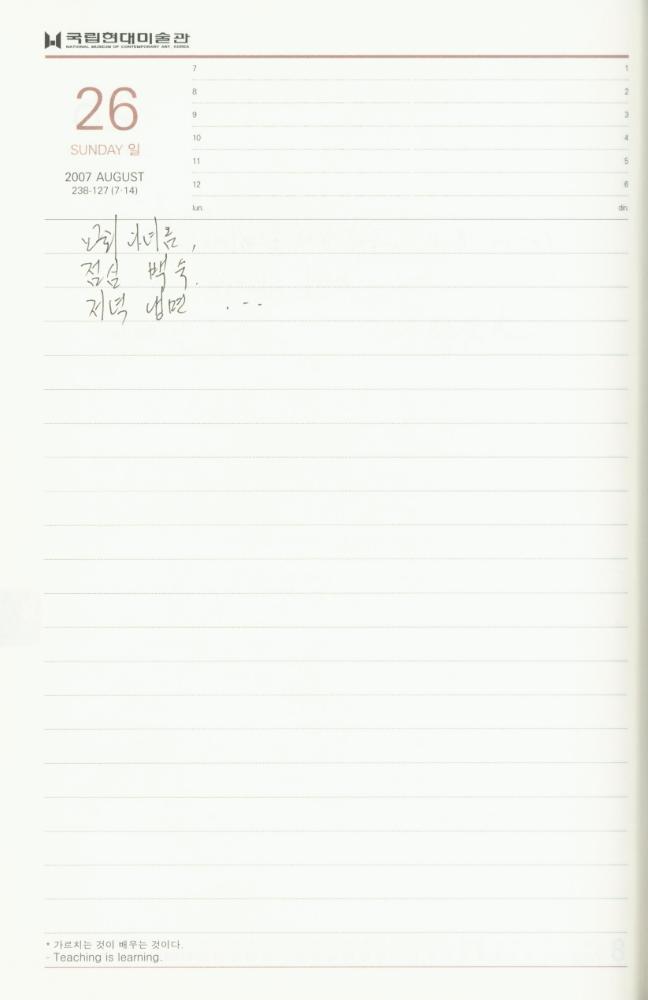 국립현대미술관
NATIONAL MUSEUM OF CONTEMPORARY ART, KOREA
26
SUNDAY 일
2007 AUGUST
238-127 (7·14)
7 1
8 2
9 3
10 4
11 5
12 6
lun. din.
교회 다녀옴,
점심 백숙.
저녁 냉면 . - -
* 가르치는 것이 배우는 것이다.
- Teaching is learning.